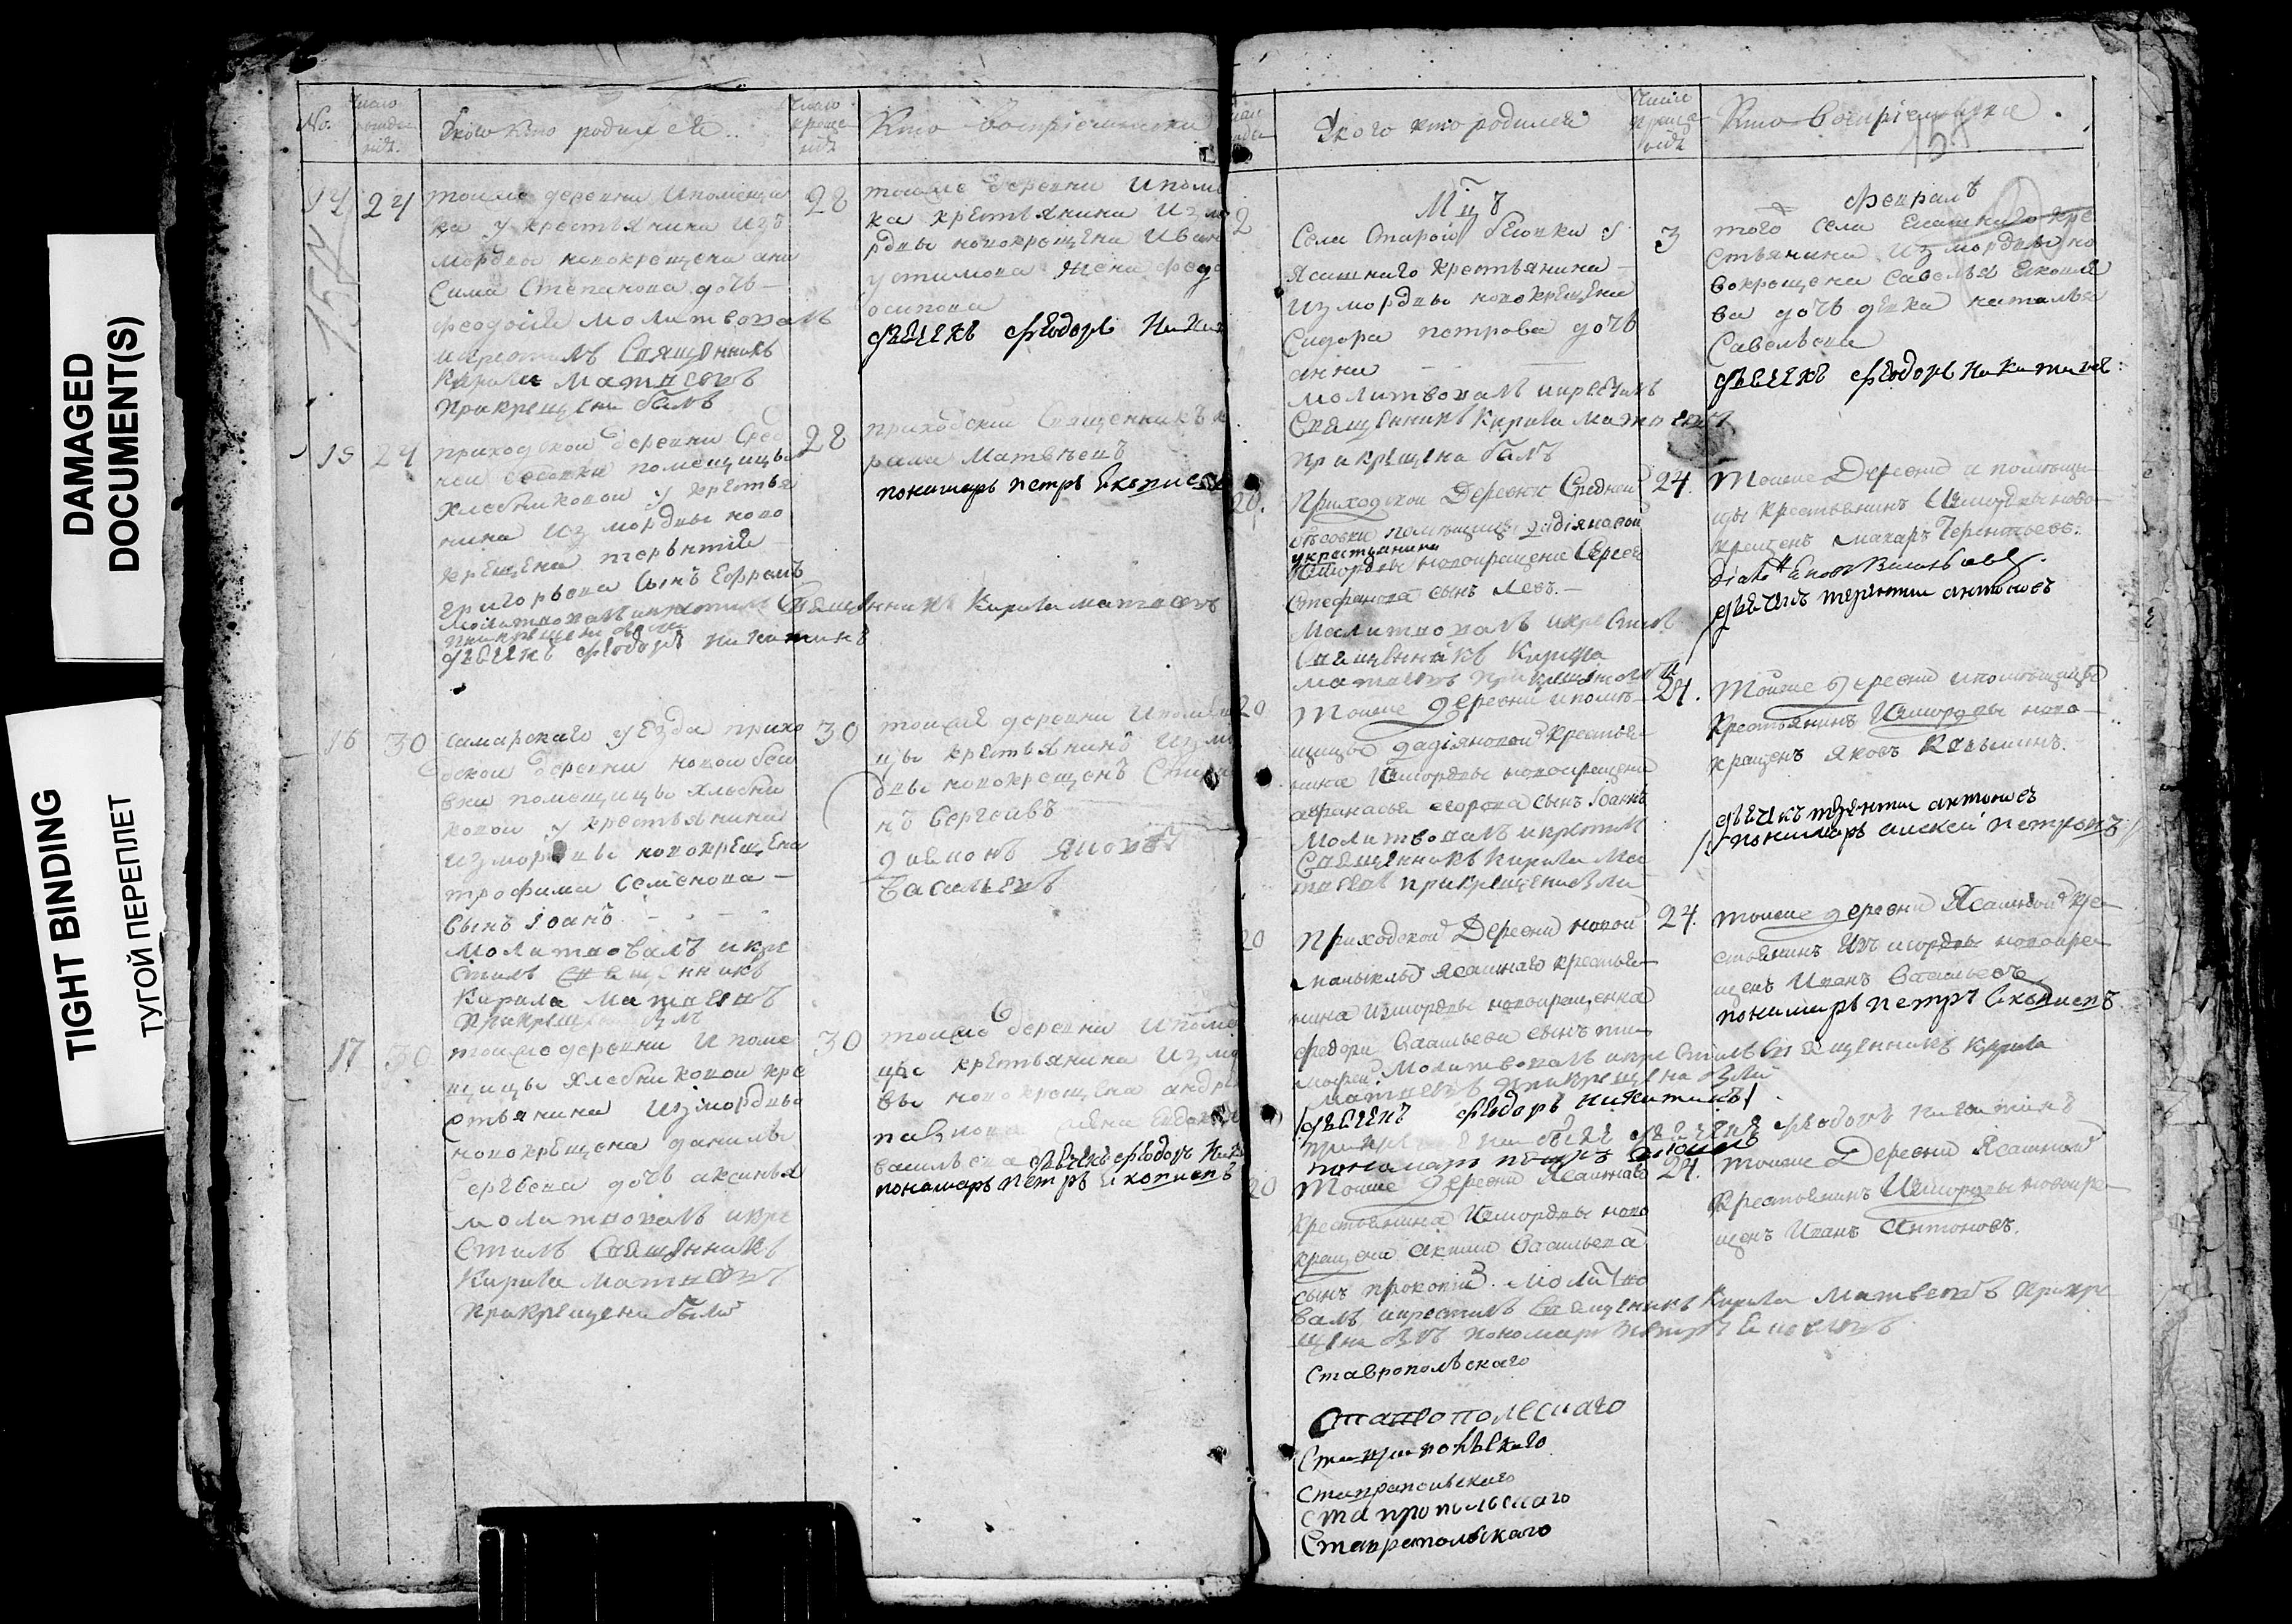 DAMAGED
DOCUMENT(S)
TIGHT BINDING
ТУГОЙ ПЕРЕПЛЕТ
No.
число рождения
У кого кто родился
число крещения
Кто восприемники
14
24
тоиже деревни и помещи
ка у крестьянина изъ
мордвы новокрещена ани
сима Степанова дочь
феодосия молитвовалъ
и крестилъ Священникъ
Кирила Матвеевъ
при крещени былъ
28
тоиже деревни и поме
ка крестьянина из мо
рдвы новокрещена Иван
устимова жена федо
осипова
дьячекъ Феодоръ Ники
15
24
приходской деревни Сред
ней бесовки помещицы
Хлебниковой у крестья
нина из мордвы ново
крещена терентия
григорьева сынъ Ефремъ
молитвовалъ и крестилъ Священникъ Кирила матвеевъ
при крещени были
дьячекъ Феодоръ Никитинъ
28
приходский Священникъ к
рила Матвеевъ
пономарь петръ
16
30
Самарскаго уезда прихо
дской деревни новой бесо
вки помещицы хлебни
ковой у крестьянина
из мордвы новокрещена
трофима Семенова
сынъ Иоанъ
Молитвовалъ и кре
стилъ Священникъ
Кирила Матвеевъ
При крещени былъ
30
тоиже деревни и помещи
цы крестьянинъ из мо
рдвы новокрещенъ Степа
нъ Сергеевъ
дияконъ Яковъ
Васильевъ
17
30
тоиже деревни и поме
щицы Хлебниковой кре
стьянина из мордвы
новокрещена данилы
сергеева дочь аксинья
молитвовалъ и кре
стилъ Священникъ
Кирила Матвеевъ
При крещени были
30
тоиже деревни и поме
цы крестьянина из мо
вы новокрещена андре
павлова жена Евдокия
васильева дьячекъ Феодоръ Ник
пономарь петръ
У кого кто родился
число крещения
Кто восприемники
151
Мцъ
Февраль
2
Села Старой бесовки у
Ясашнаго крестьянина
из мордвы новокрещена
Сидора петрова дочь
анна
молитвовалъ и крестилъ
Священникъ Кирила Матвеевъ
при крещени былъ
3
того села Ясашнаго кре
стьянина из мордвы но
вокрещена Савелья
ва дочь девка наталья
Савельева
дьячекъ Феодоръ Никитинъ
20.
Приходской Деревни Средней
бесовки помещицы дадiяновой
у крестьянина
из мордвы новокрещена Сергея
Стефанова сынъ Левъ.
Молитвовалъ и крестилъ
Священникъ Кирила
матвеевъ при крещени
24.
Тоиже Деревни и помещи
цы крестьянинъ из мордвы ново
крещенъ макаръ Терентьевъ.
Дiаконъ Яковъ Васильевъ
дьячекъ терентий антоновъ
20
Тоиже деревни и поме
щицы дадiяновой крестья
нина из мордвы новокрещена
афанасья егорова сынъ Iоаннъ
Молитвовалъ и крестилъ
Священникъ Кирила Ма
твеевъ при крещени были
24.
Тоиже деревни и помещицы
Крестьянинъ из мордвы ново
крещенъ Яковъ
дьячекъ терентий антоновъ
пономарь алексей петровъ
20
Приходской Деревни новой
малыклы Ясашнаго крестья
нина из мордвы новокрещена
федора Васильева сынъ тим
мофей. Молитвовалъ и крестилъ Священникъ Кирила
матвеевъ при крещени были
дьячекъ Феодоръ никитинъ
при крещени были дьячекъ Феодоръ Никитинъ
пономарь петръ
24.
тоиже деревни Ясашной кре
стьянинъ из мордвы новокре
щенъ Иванъ Васильевъ
пономарь петръ
20
Тоиже деревни Ясашнаго
Крестьянина из мордвы ново
крещена Якима Васильева
сынъ прокопий. Молитво
валъ и крестилъ Священникъ Кирила Матвеевъ при кре
щени былъ пономарь петръ
24.
Тоиже Деревни Ясашной
Крестьянинъ из мордвы новокре
щенъ Иванъ Антоновъ.
Ставропольскаго
Ставрополескаго
Ставропольскаго
Ставропольскаго
Ставропольскаго
Ставропольскаго